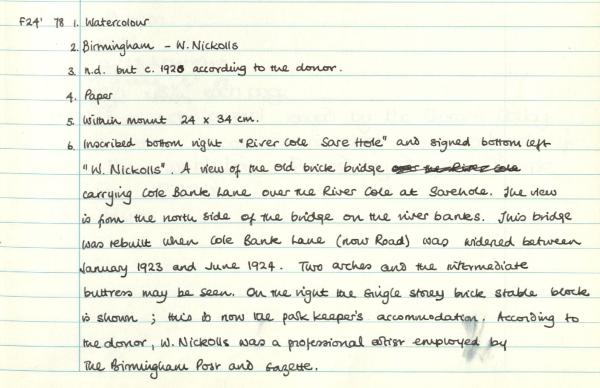 F24' 78 1. Watercolour
2. Birmingham - W. Nickolls
3. n.d. but c. 1920 according to the donor.
4. Paper
5. Within mount 24 x 34 cm.
6. Inscribed bottom right "River Cole Sare Hole" and signed bottom left
"W. Nickolls". A view of the old brick bridge over the River Cole
carrying Cole Bank Lane over the River Cole at Sarehole. The view
is from the north side of the bridge on the river banks. This bridge
was rebuilt when Cole Bank Lane (now Road) was widened between
January 1923 and June 1924. Two arches and the intermediate
buttress may be seen. On the right the single storey brick stable block
is shown ; this is now the park keeper's accommodation. According to
the donor, W. Nickolls was a professional artist employed by
The Birmingham Post and Gazette.